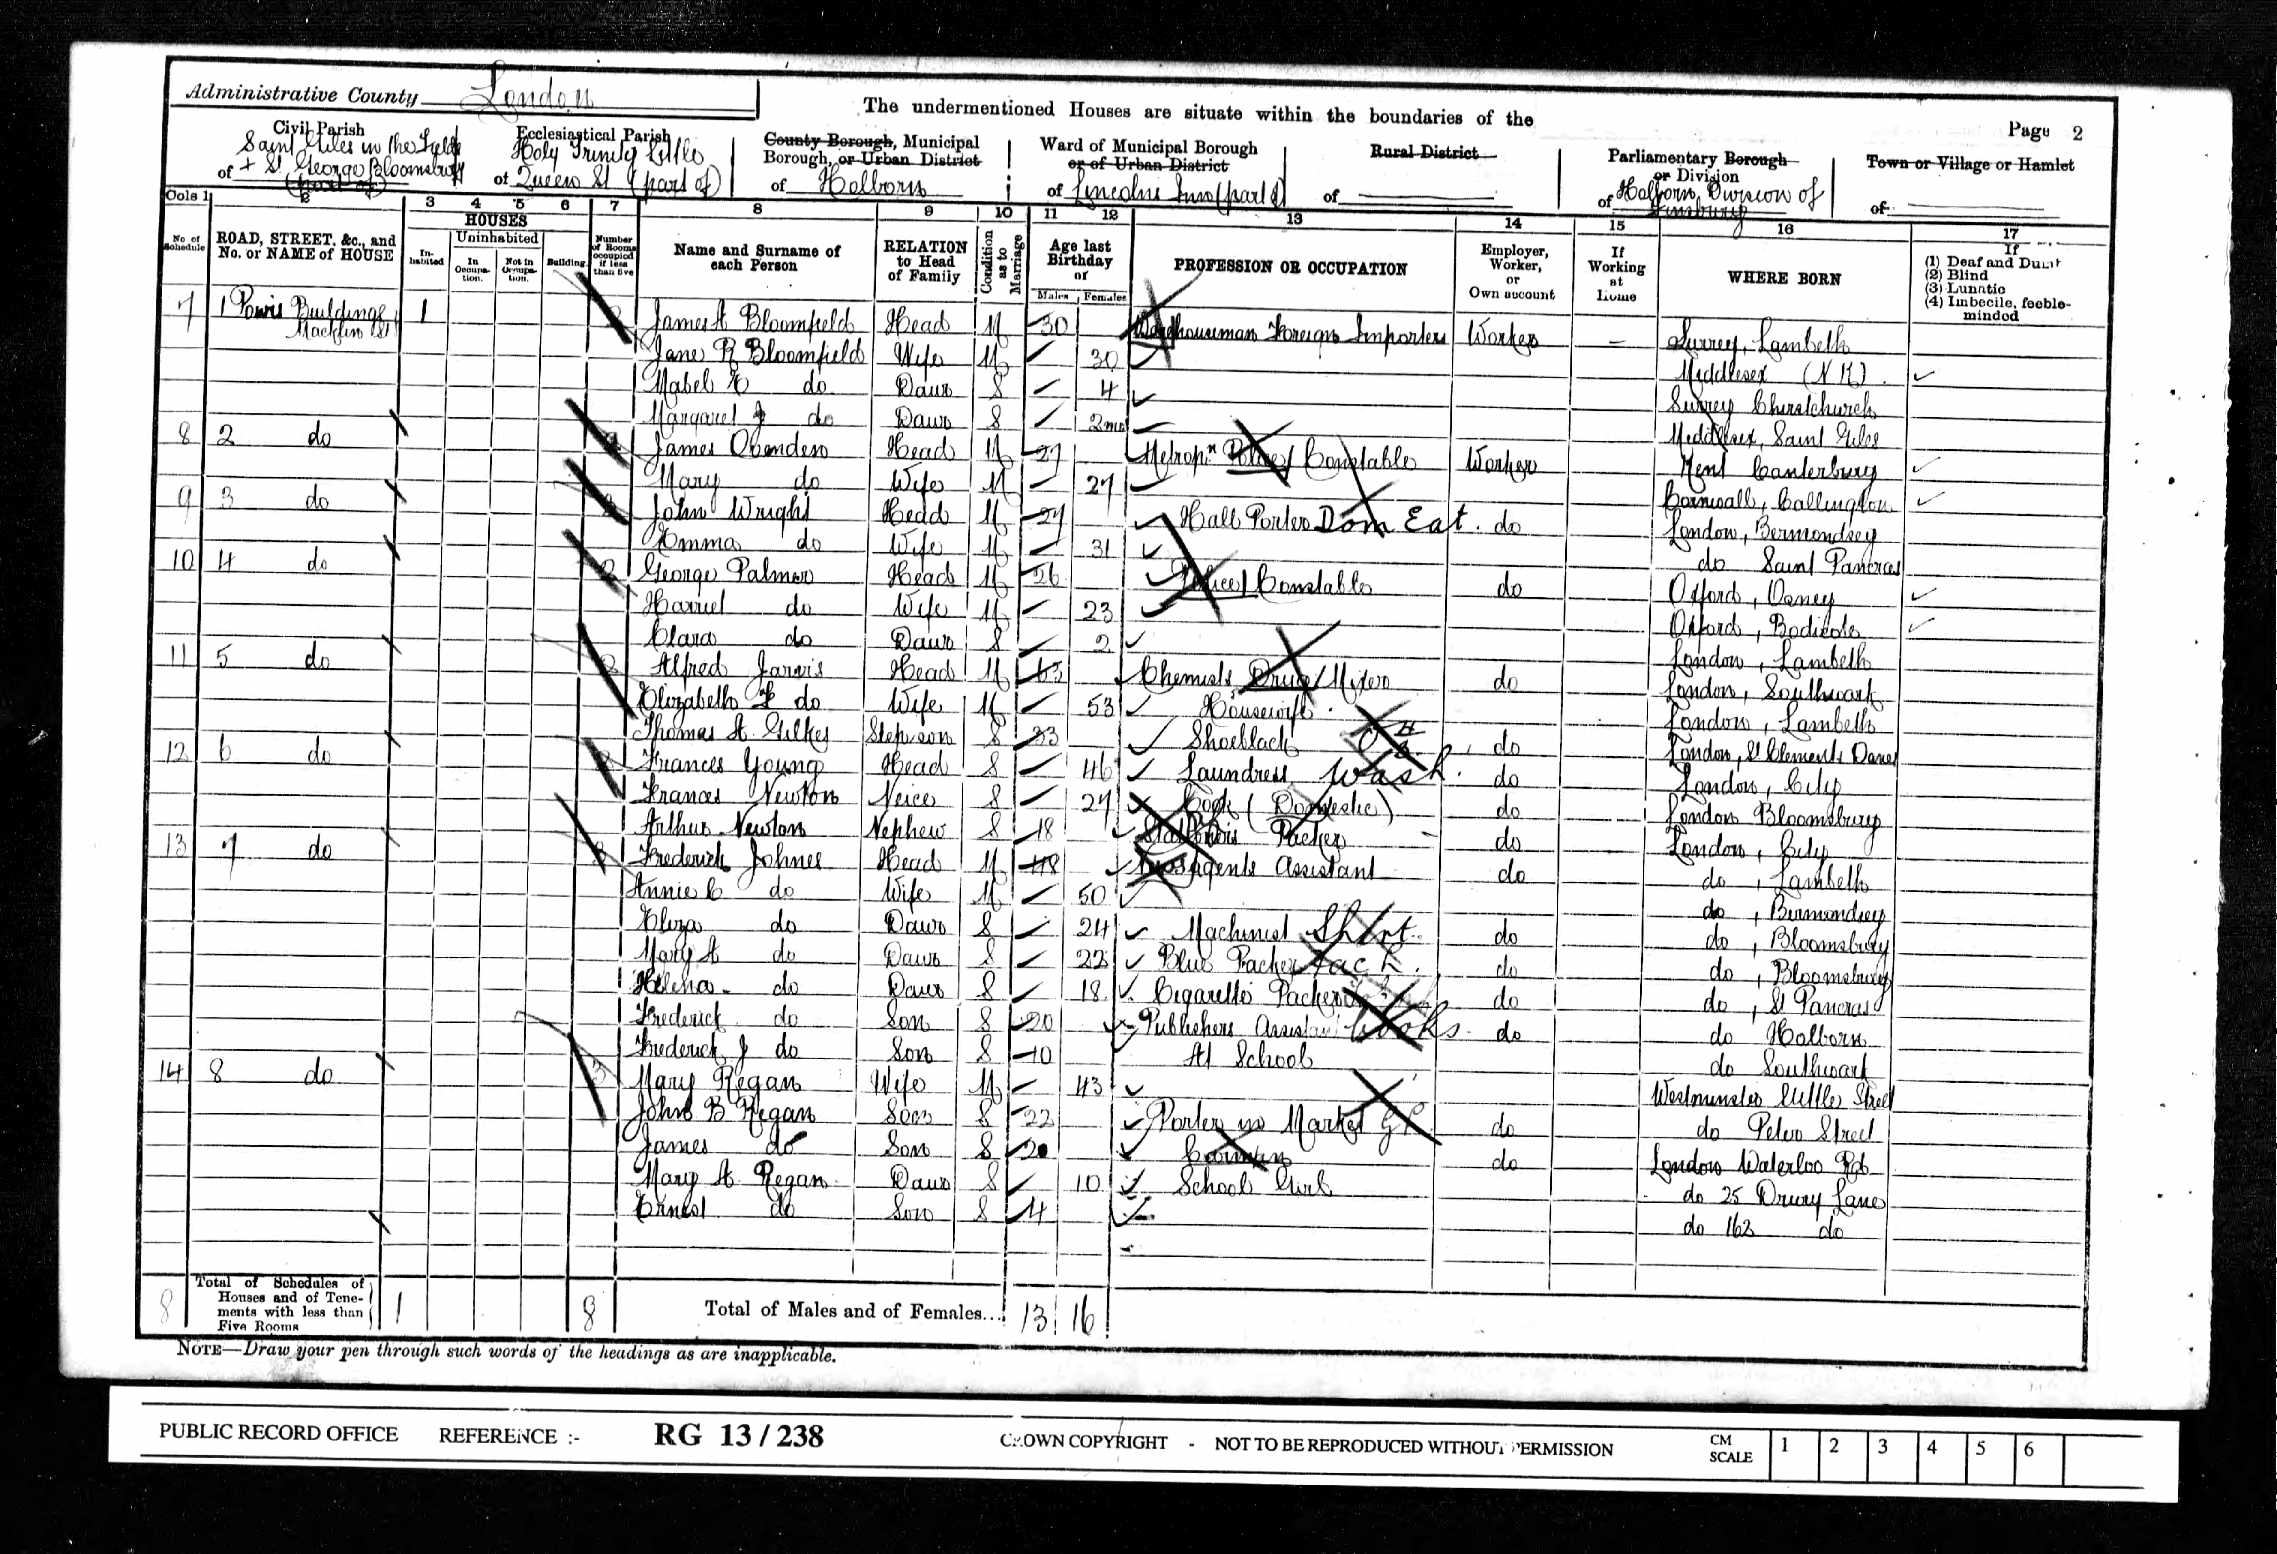 Administrative County London
The undermentioned Houses are situate within the boundaries of the
Page 2
Civil Parish
of Saint Giles in the Fields
+ St George Bloomsbury
(part of)
Ecclesiastical Parish
of Holy Trinity Little
Queen St (part of)
County Borough, Municipal
Borough, or Urban District
of Holborn
Ward of Municipal Borough
or of Urban District
of Lincolns Inn (part of)
Rural District
of
Parliamentary Borough
or Division
of Holborn Division of
Finsbury
Town or Village or Hamlet
of
Cols 1 2 3 4 5 6 7 8 9 10 11 12 13 14 15 16 17
No. of Schedule
ROAD, STREET, &c., and No. or NAME of HOUSE
HOUSES
Inhabited
Uninhabited
In Occupation.
Not in Occupation.
Building.
Number of Rooms occupied if less than five
Name and Surname of each Person
RELATION to Head of Family
Condition as to Marriage
Age last Birthday of
Males Females
PROFESSION OR OCCUPATION
Employer, Worker, or Own account
If Working at Home
WHERE BORN
If
(1) Deaf and Dumb
(2) Blind
(3) Lunatic
(4) Imbecile, feeble-minded
7 1 Powis Buildings Macklin St 1 James A Bloomfield Head M 30 Warehouseman Foreign Importers Worker — Surrey, Lambeth
Jane R Bloomfield Wife M 30 Middlesex (N K)
Mabel do Daur S 4 Surrey Christchurch
Margaret J do Daur S 2 mo Middlesex, Saint Giles
8 2 do James Obenden Head M 27 Metropn Police Constable Worker Kent Canterbury
Mary do Wife M 27 Cornwall, Callington
9 3 do John Wright Head M 29 Hall Porter Dom Eat. do London, Bermondsey
Emma do Wife M 31 do Saint Pancras
10 4 do George Palmer Head M 26 Police Constable do Oxford, Osney
Harriet do Wife M 23 Oxford, Bodicote
Clara do Daur S 2 London, Lambeth
11 5 do Alfred Jarvis Head M 63 Chemists Drug Mixer do London, Southwark
Elizabeth F do Wife M 53 Housewife London, Lambeth
Thomas A. Gilkes Stepson S 23 Shoeblack do London, St Clements Danes
12 6 do Frances Young Head S 46 Laundress Wash. do London, City
Frances Newton Neice S 27 Cook (Domestic) do London Bloomsbury
Arthur Newton Nephew S 18 Stationers Packer do London, City
13 7 do Frederick Johnes Head M 48 Newsagents Assistant do do, Lambeth
Annie C do Wife M 50 do, Bermondsey
Eliza do Daur S 24 Machinist Shirt. do do, Bloomsbury
Mary A do Daur S 22 Blue Packer Fact. do do, Bloomsbury
Helena do Daur S 18 Cigarette Packer do do, St Pancras
Frederick do Son S 20 Publishers Assistant Books do do Holborn
Frederick J do Son S 10 At School do Southwark
14 8 do 3 Mary Regan Wife M 43 Westminster Little Street
John B Regan Son S 22 Porter in Market do do Peter Street
James do Son S 20 Carman do London Waterloo Rd
Mary A Regan Daur S 10 School Girl do 25 Drury Lane
Ernest do Son S 4 do 162 do
8 Total of Schedules of Houses and of Tenements with less than Five Rooms 1 8 Total of Males and of Females... 13 16
NOTE—Draw your pen through such words of the headings as are inapplicable.
PUBLIC RECORD OFFICE REFERENCE :- RG 13 / 238 CROWN COPYRIGHT - NOT TO BE REPRODUCED WITHOUT PERMISSION CM SCALE 1 2 3 4 5 6